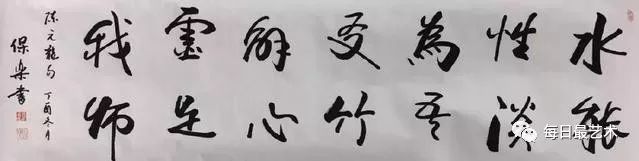 水能
性淡
為吾
友竹
解心
虛是
我師
陳元龍句 丁酉冬月
保樂書
每日最艺术